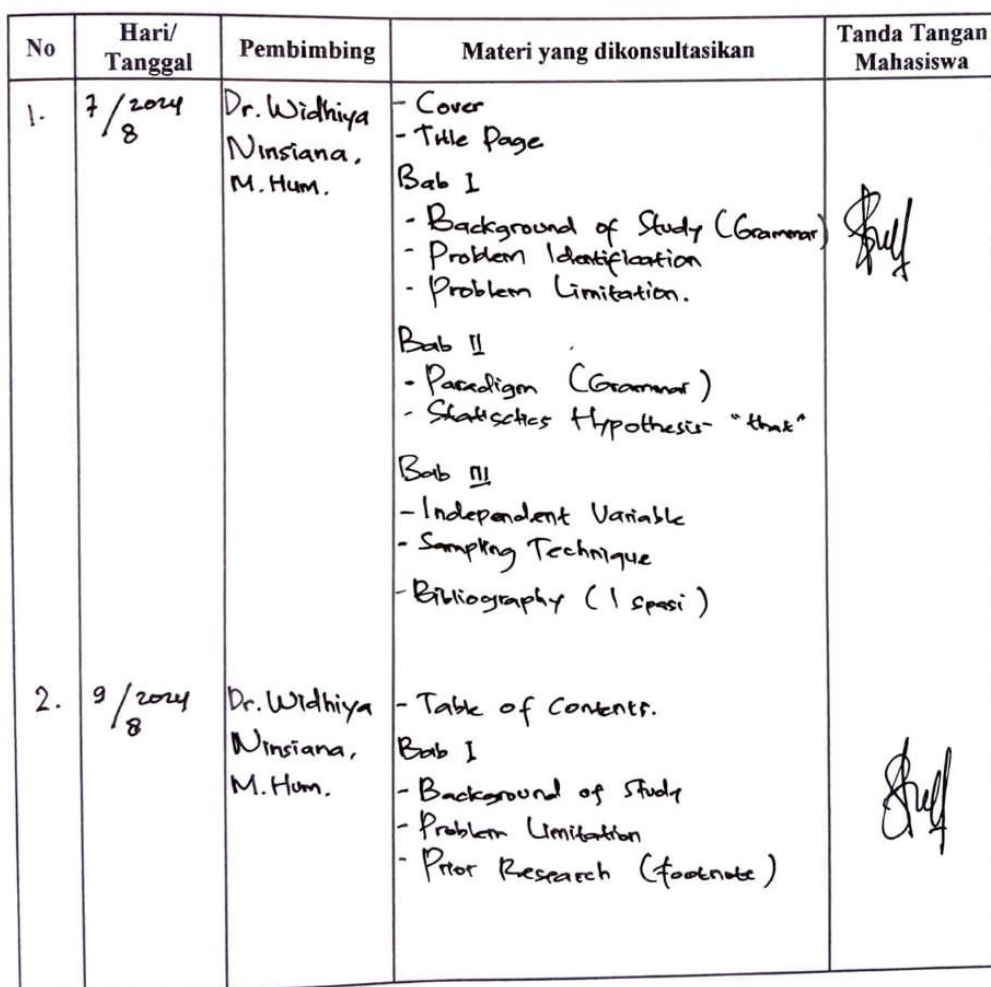 No
Hari/
Tanggal
Pembimbing
Materi yang dikonsultasikan
Tanda Tangan
Mahasiswa
1.
7/8 2024
Dr. Widhiya
Ninsiana,
M. Hum.
- Cover
- Title Page
Bab I
- Background of Study (Grammar)
- Problem Identification
- Problem Limitation.
Bab II
- Paradigm (Grammar)
- Statisctics Hypothesis - "that"
Bab III
- Independent Variable
- Sampling Technique
- Bibliography (1 spasi)
2.
9/8 2024
Dr. Widhiya
Ninsiana,
M. Hum.
- Table of Contents.
Bab I
- Background of Study
- Problem Limitation
- Prior Research (footnote)